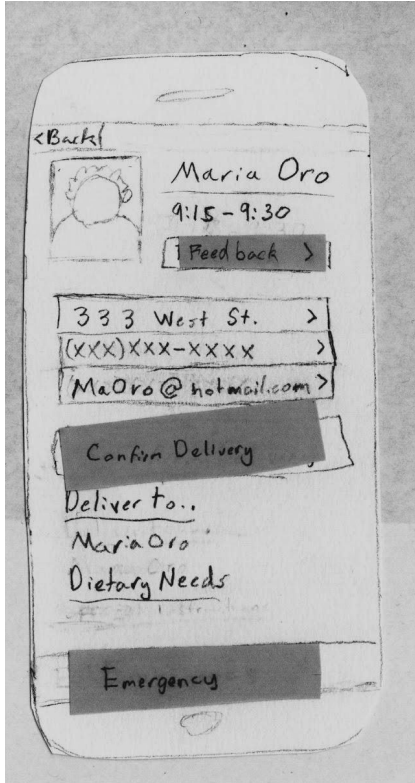 <Back
Maria Oro
9:15-9:30
Feedback >
333 West St. >
(xxx)xxx-xxxx >
MaOro@hotmail.com >
Confirm Delivery
Deliver to..
Maria Oro
Dietary Needs
Emergency